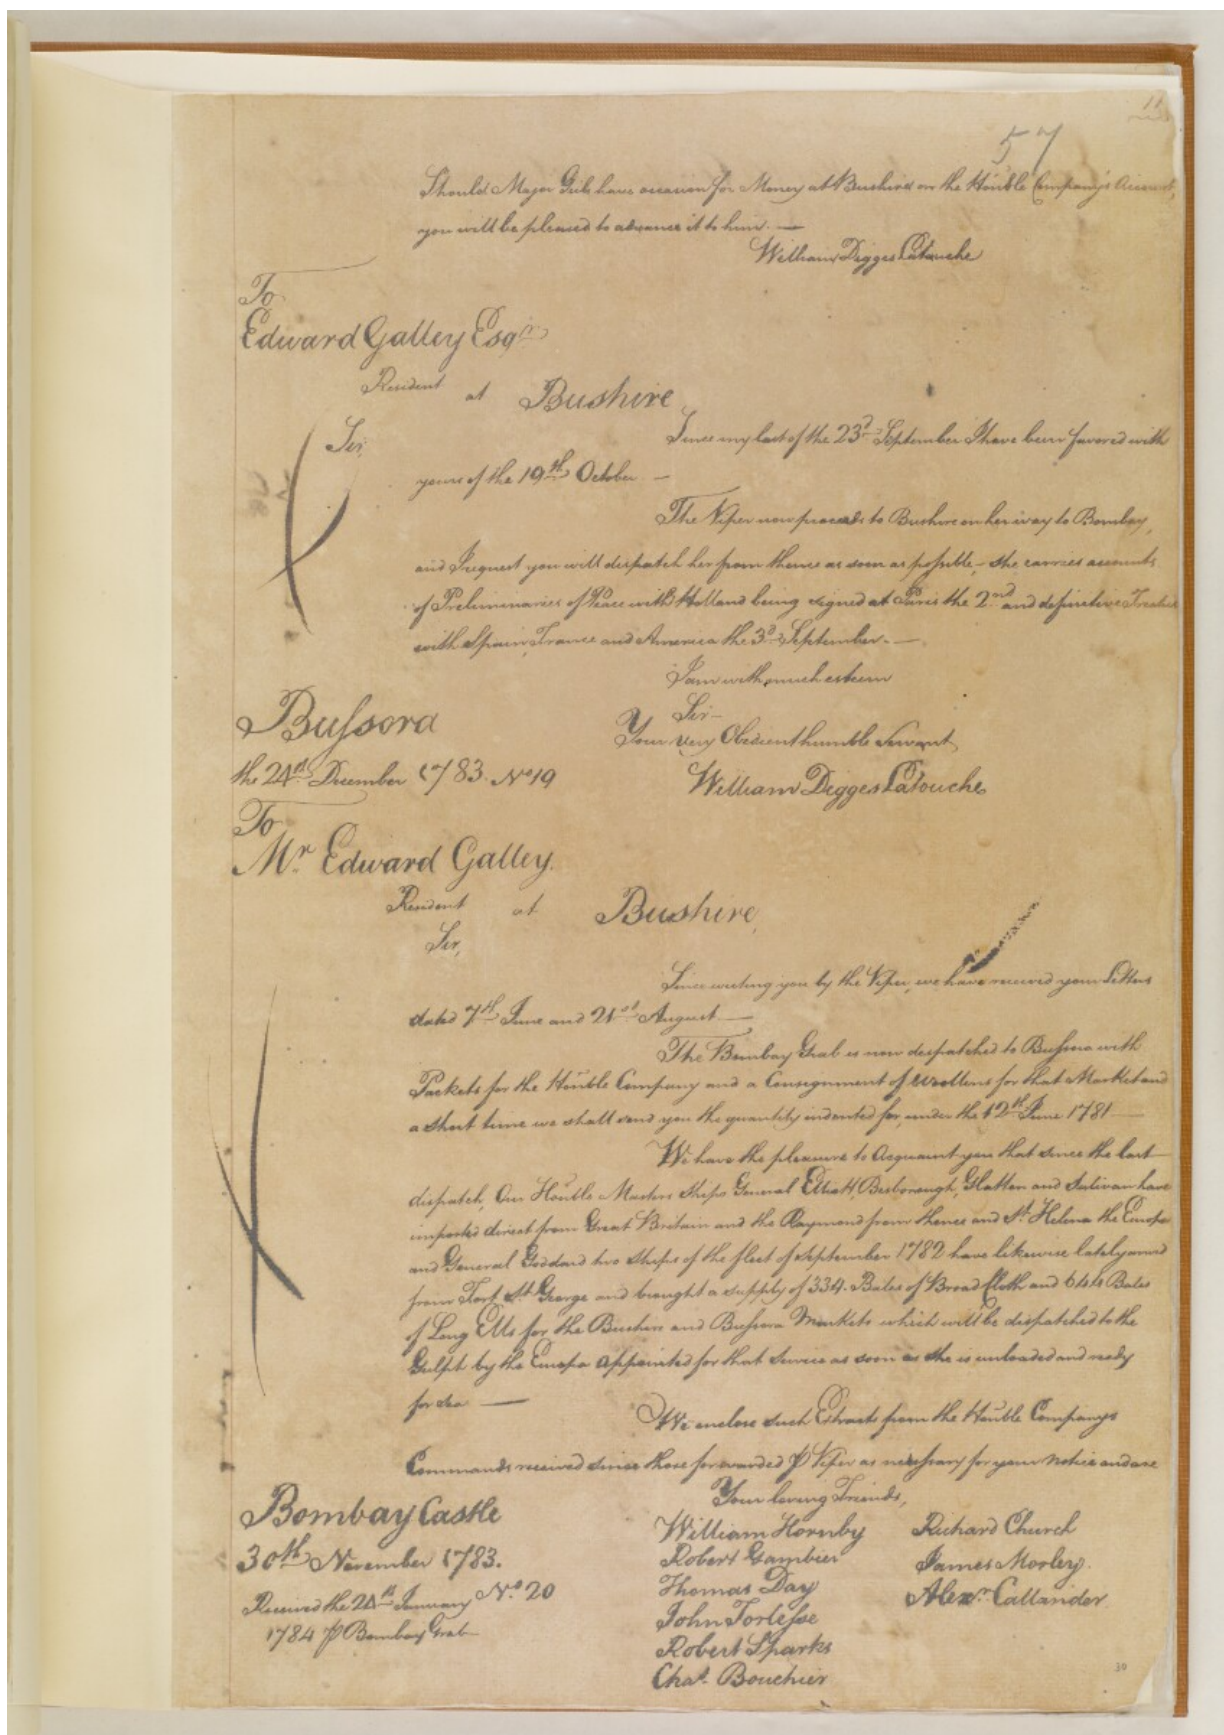 11
57
Should Major Gul have occasion for Money at Bushire on the Honble Company's Account,
you will be pleased to advance it to him. —
William Digges Latouche
To
Edward Galley Esqr.
Resident at Bushire
Sir,
Since my last of the 23d. September I have been favored with
yours of the 19th October —
The Viper now proceeds to Bushire on her way to Bombay,
and I request you will dispatch her from thence as soon as possible, - she carries accounts
of Preliminaries of Peace with Holland being signed at Paris the 2nd and definitive Treaties
with Spain, France and America the 3d. September. —
I am with much esteem
Sir -
Your very Obedient humble Servant
Bussora
the 24th December 1783. No 19
William Digges Latouche
To
Mr. Edward Galley.
Resident at Bushire,
Sir,
Since writing you by the Viper, we have received your Letters
dated 7th June and 21st August —
The Bombay Grab is now despatched to Bussora with
Packets for the Honble Company and a Consignment of Woollens for that Market and
a short time we shall send you the quantity indented for, under the 12th June 1781 —
We have the pleasure to Acquaint you that since the last
dispatch, Our Honble Masters Ships General Elliott, Besborough, Hatton and Sulivan have
imported direct from Great Britain and the Raymond from thence and St. Helena the Europa
and General Goddard two Ships of the fleet of September 1782 have likewise lately arrived
from Fort St. George and brought a supply of 334. Bales of Broad Cloth and 644 Bales
of Long Ells for the Bushire and Bussora Markets which will be dispatched to the
Gulph by the Europa appointed for that Service as soon as she is unloaded and ready
for sea —
We enclose such Extracts from the Honble Companys
Commands received since those forwarded P Viper as necessary for your notice and are
Your loving Friends,
Bombay Castle
30th November 1783.
Received the 24th January No. 20
1784 P Bombay Grab
William Hornby
Robert Gambier
Thomas Day
John Torlesse
Robert Sparks
Chas. Bouchier
Richard Church
James Morley.
Alexr. Callander
30